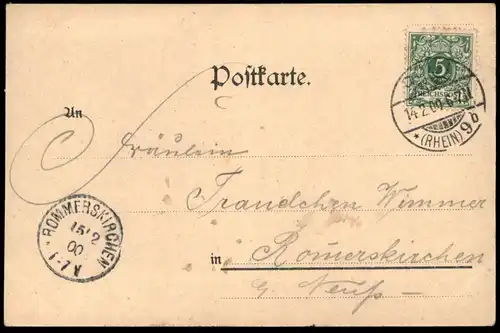 Postkarte.
5
REICHSPOST
14.2.00.6-7N
*(RHEIN) 9b
An
Fräulein
Traudchen Wimmer
in Romerskirchen
b. Neuß
ROMMERSKIRCHEN
15/2
00